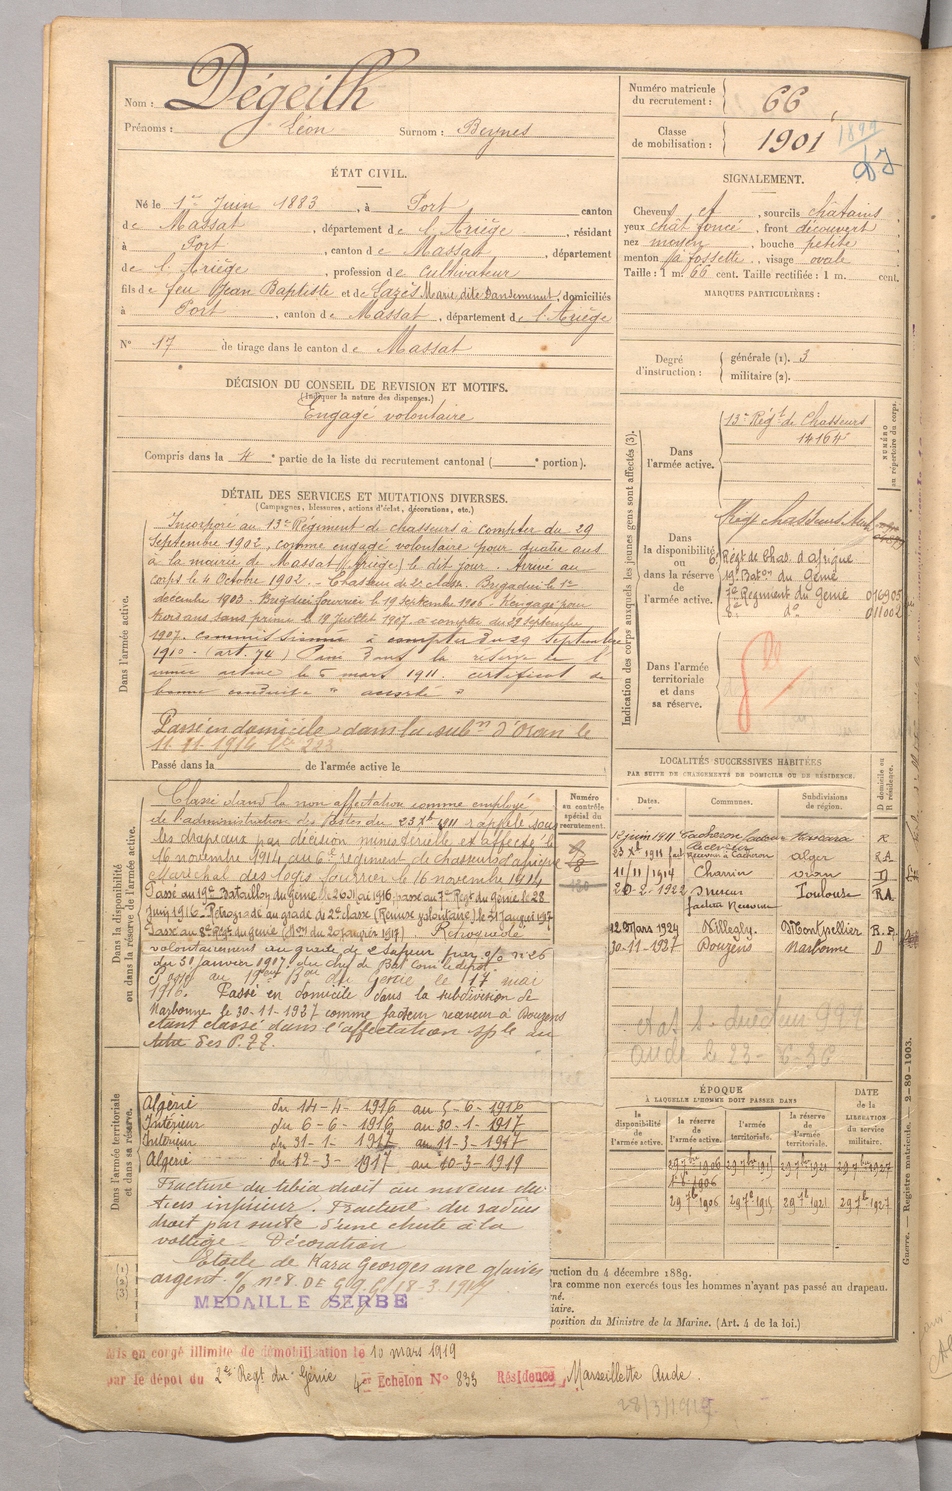 Nom : Dégeilh
Prénoms : Léon Surnom : Beynes
ÉTAT CIVIL.
Né le 1er Juin 1883, à Port canton
de Massat, département de l'Ariège, résidant
à Port, canton de Massat, département
de l'Ariège, profession de cultivateur
fils de feu Jean Baptiste et de Cazès Marie dite Dansement, domiciliés
à Port, canton de Massat, département de l'Ariège
N° 17 de tirage dans le canton de Massat
DÉCISION DU CONSEIL DE REVISION ET MOTIFS.
(Indiquer la nature des dispenses.)
Engagé volontaire
Compris dans la 4e partie de la liste du recrutement cantonal ( e portion).
DÉTAIL DES SERVICES ET MUTATIONS DIVERSES.
(Campagnes, blessures, actions d'éclat, décorations, etc.)
Dans l'armée active.
Incorporé au 13e Régiment de chasseurs à compter du 29
Septembre 1902, comme engagé volontaire pour quatre ans
à la mairie de Massat (Ariège) le dit jour. Arrivé au
corps le 4 Octobre 1902. - Chasseur de 2e classe. Brigadier le 1er
décembre 1903. Brigadier fourrier le 19 Septembre 1906. Rengagé pour
trois ans sans prime le 18 Juillet 1907 à compter du 29 Septembre
1907. commissionné à compter du 29 Septembre
1910 - (art. 74) Passé dans la réserve de l'
armée active le 5 mars 1911. certificat de
bonne conduite " accordé "
Passé en domicile dans la subon d'Oran le
11-11-1914 223
Passé dans la de l'armée active le
Dans la disponibilité
ou dans la réserve de l'armée active.
Classé dans la non affectation comme employé
de l'administration des postes du 23 Xbre 1911 rappelé sous
les drapeaux par décision ministérielle et affecté le
16 novembre 1914 au 6e régiment de chasseurs d'afrique
Maréchal des logis fourrier le 16 novembre 1914
Passé au 19e Bataillon du Génie le 26 Mai 1916 passé au 7e Régt du génie le 28
Juin 1916. Rétrogradé au grade de 2e classe (Remise volontaire) le 31 Janvier 1917
Passé au 2e Régt du génie Rétrogradé
volontairement au grade de Sapeur par o/o n° 26
du 30 janvier 1917 du chef de Bon Com le dépôt
Passé au 19e Bon du Génie le 17 mai
1916. Passé en domicile dans la subdivision de
Narbonne le 30-11-1927 comme facteur receveur à Douzens
étant classé dans l'affectation sple au
titre des P.T.T.
Dans l'armée territoriale
et dans sa réserve.
Algérie du 14-4-1916 au 5-6-1916
Intérieur du 6-6-1916 au 30-1-1917
Intérieur du 31-1-1917 au 11-3-1917
Algérie du 12-3-1917 au 10-3-1919
Fracture du tibia droit au niveau du
tiers inférieur. Fracture du radius
droit par suite d'une chute à la
voltige. Décoration
Etoile de Kara Georges avec glaives
argent. o/o n° 8. DE G.Q.G. 18-3-1917
MEDAILLE SERBE
Numéro matricule
du recrutement : 66
Classe
de mobilisation : 1901
1899
SIGNALEMENT.
Cheveux et, sourcils châtains
yeux chât foncé, front découvert
nez moyen, bouche petite
menton à fossette, visage ovale
Taille : 1 m. 66 cent. Taille rectifiée : 1 m. cent.
MARQUES PARTICULIÈRES :
Degré
d'instruction :
générale (1). 3
militaire (2).
Indication des corps auxquels les jeunes gens sont affectés (3).
NUMÉRO
au répertoire du corps.
Dans
l'armée active.
13e Régt de Chasseurs
Dans
la disponibilité
ou
dans la réserve
de
l'armée active.
6e Régt de Chas. d'afrique
19e Baton du Génie
7e Régiment du Génie 016905
2e do 011002
Dans l'armée
territoriale
et dans
sa réserve.
LOCALITÉS SUCCESSIVES HABITÉES
PAR SUITE DE CHANGEMENTS DE DOMICILE OU DE RÉSIDENCE.
Numéro
au contrôle
spécial du
recrutement.
Dates. Communes. Subdivisions
de région. D domicile ou
R résidence.
12 juin 1911 Cacheron facteur Mascara R
23 Xbre 1911 Receveur à Cacheron alger RA
11/11/1914 Charrin oran D
20-2-1922 facteur Receveur Toulouse RA
12 Mars 1924 Villegly Montpellier R.A.
30-11-1927 Douzens Narbonne D
ÉPOQUE
À LAQUELLE L'HOMME DOIT PASSER DANS
DATE
de la
LIBÉRATION
du service
militaire.
la
disponibilité
de
l'armée active.
la réserve
de
l'armée active.
l'armée
territoriale.
la réserve
de
l'armée
territoriale.
29 7bre 1906 29 7bre 1915 29 7bre 1921 29 7bre 1927
29 7bre 1906 29 7bre 1915 29 7bre 1921 29 7bre 1927
(1)
(2)
(3)
uction du 4 décembre 1889.
dra comme non exercés tous les hommes n'ayant pas passé au drapeau.
né.
iaire.
position du Ministre de la Marine. (Art. 4 de la loi.)
Guerre. — Registre matricule. — 2-89-1903.
Mis en congé illimité de démobilisation le 10 mars 1919
par le dépôt du 2e Régt du Génie 4e Echelon N° 835 Résidence Marseillette Aude.
28/3/1919